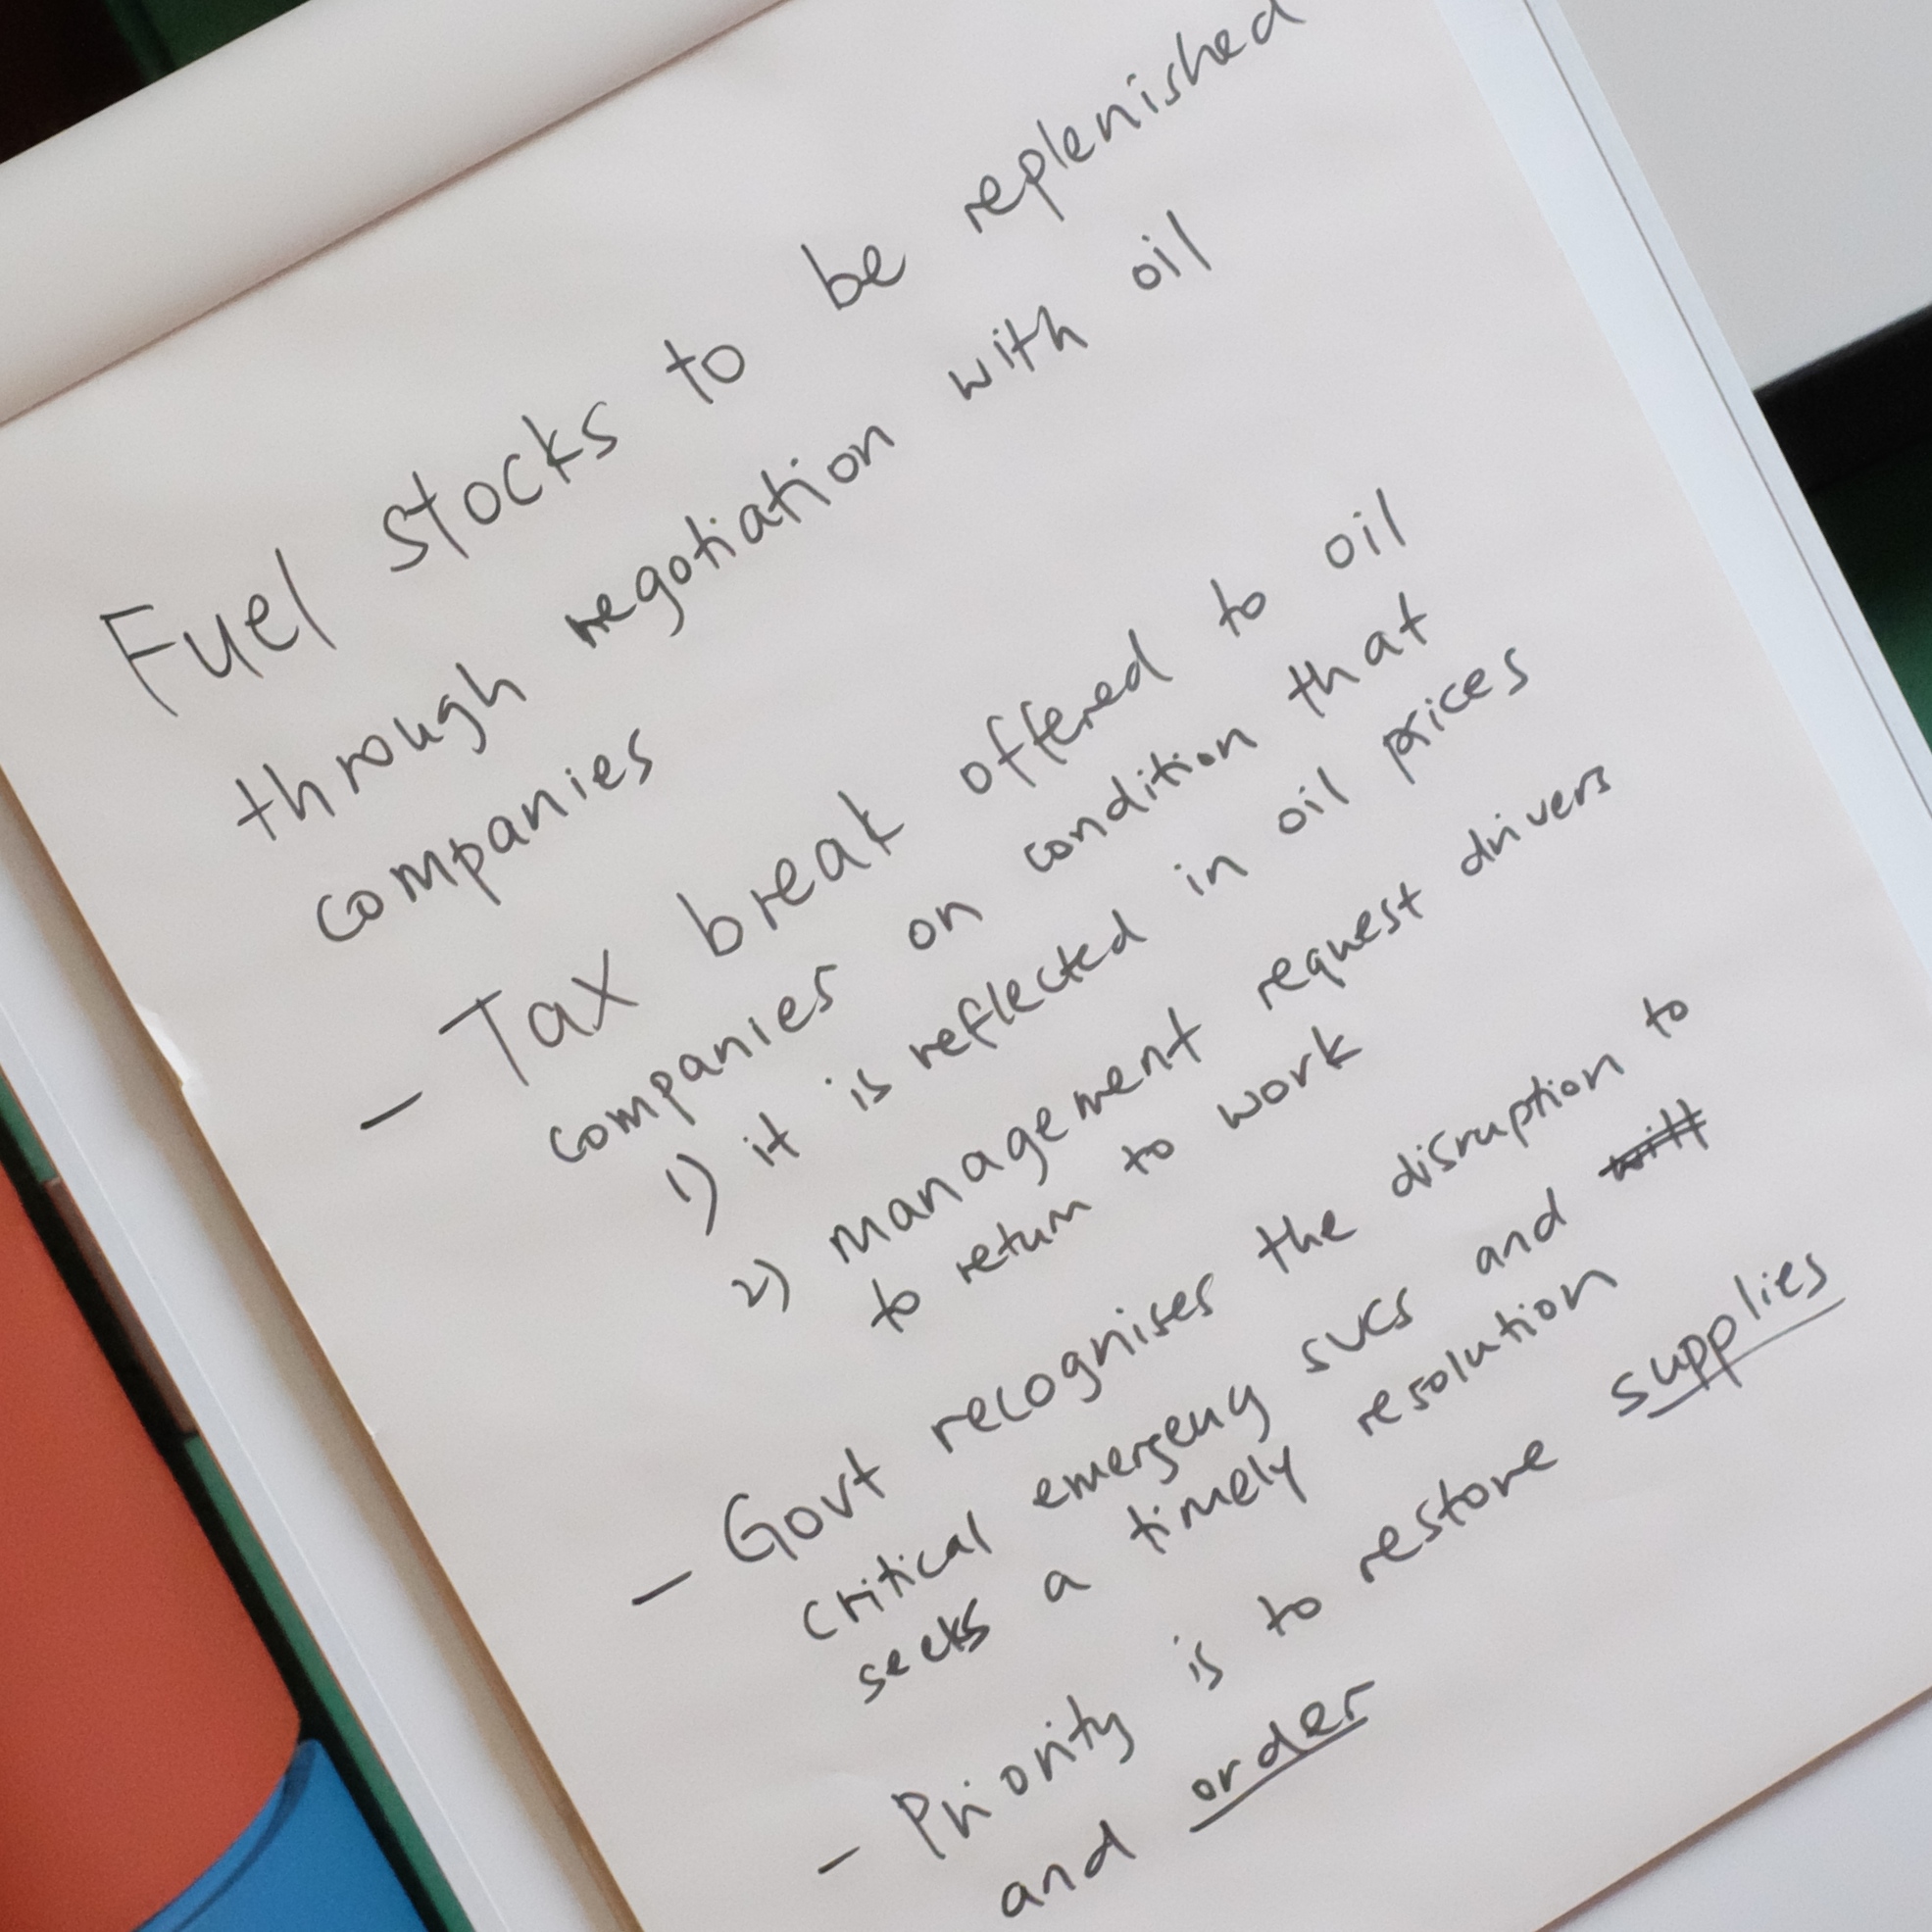 Fuel stocks to be replenished
through negotiation with oil
companies
- Tax break offered to oil
companies on condition that
1) it is reflected in oil prices
2) management request drivers
to return to work
- Govt recognises the disruption to
critical emergency svcs and will
seeks a timely resolution
- Priority is to restore supplies
and order